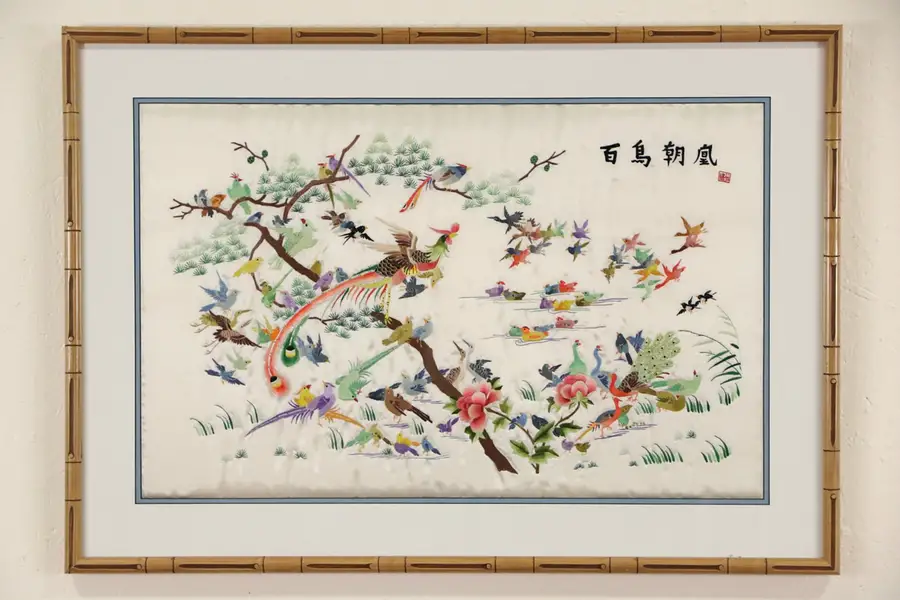 百鳥朝凰